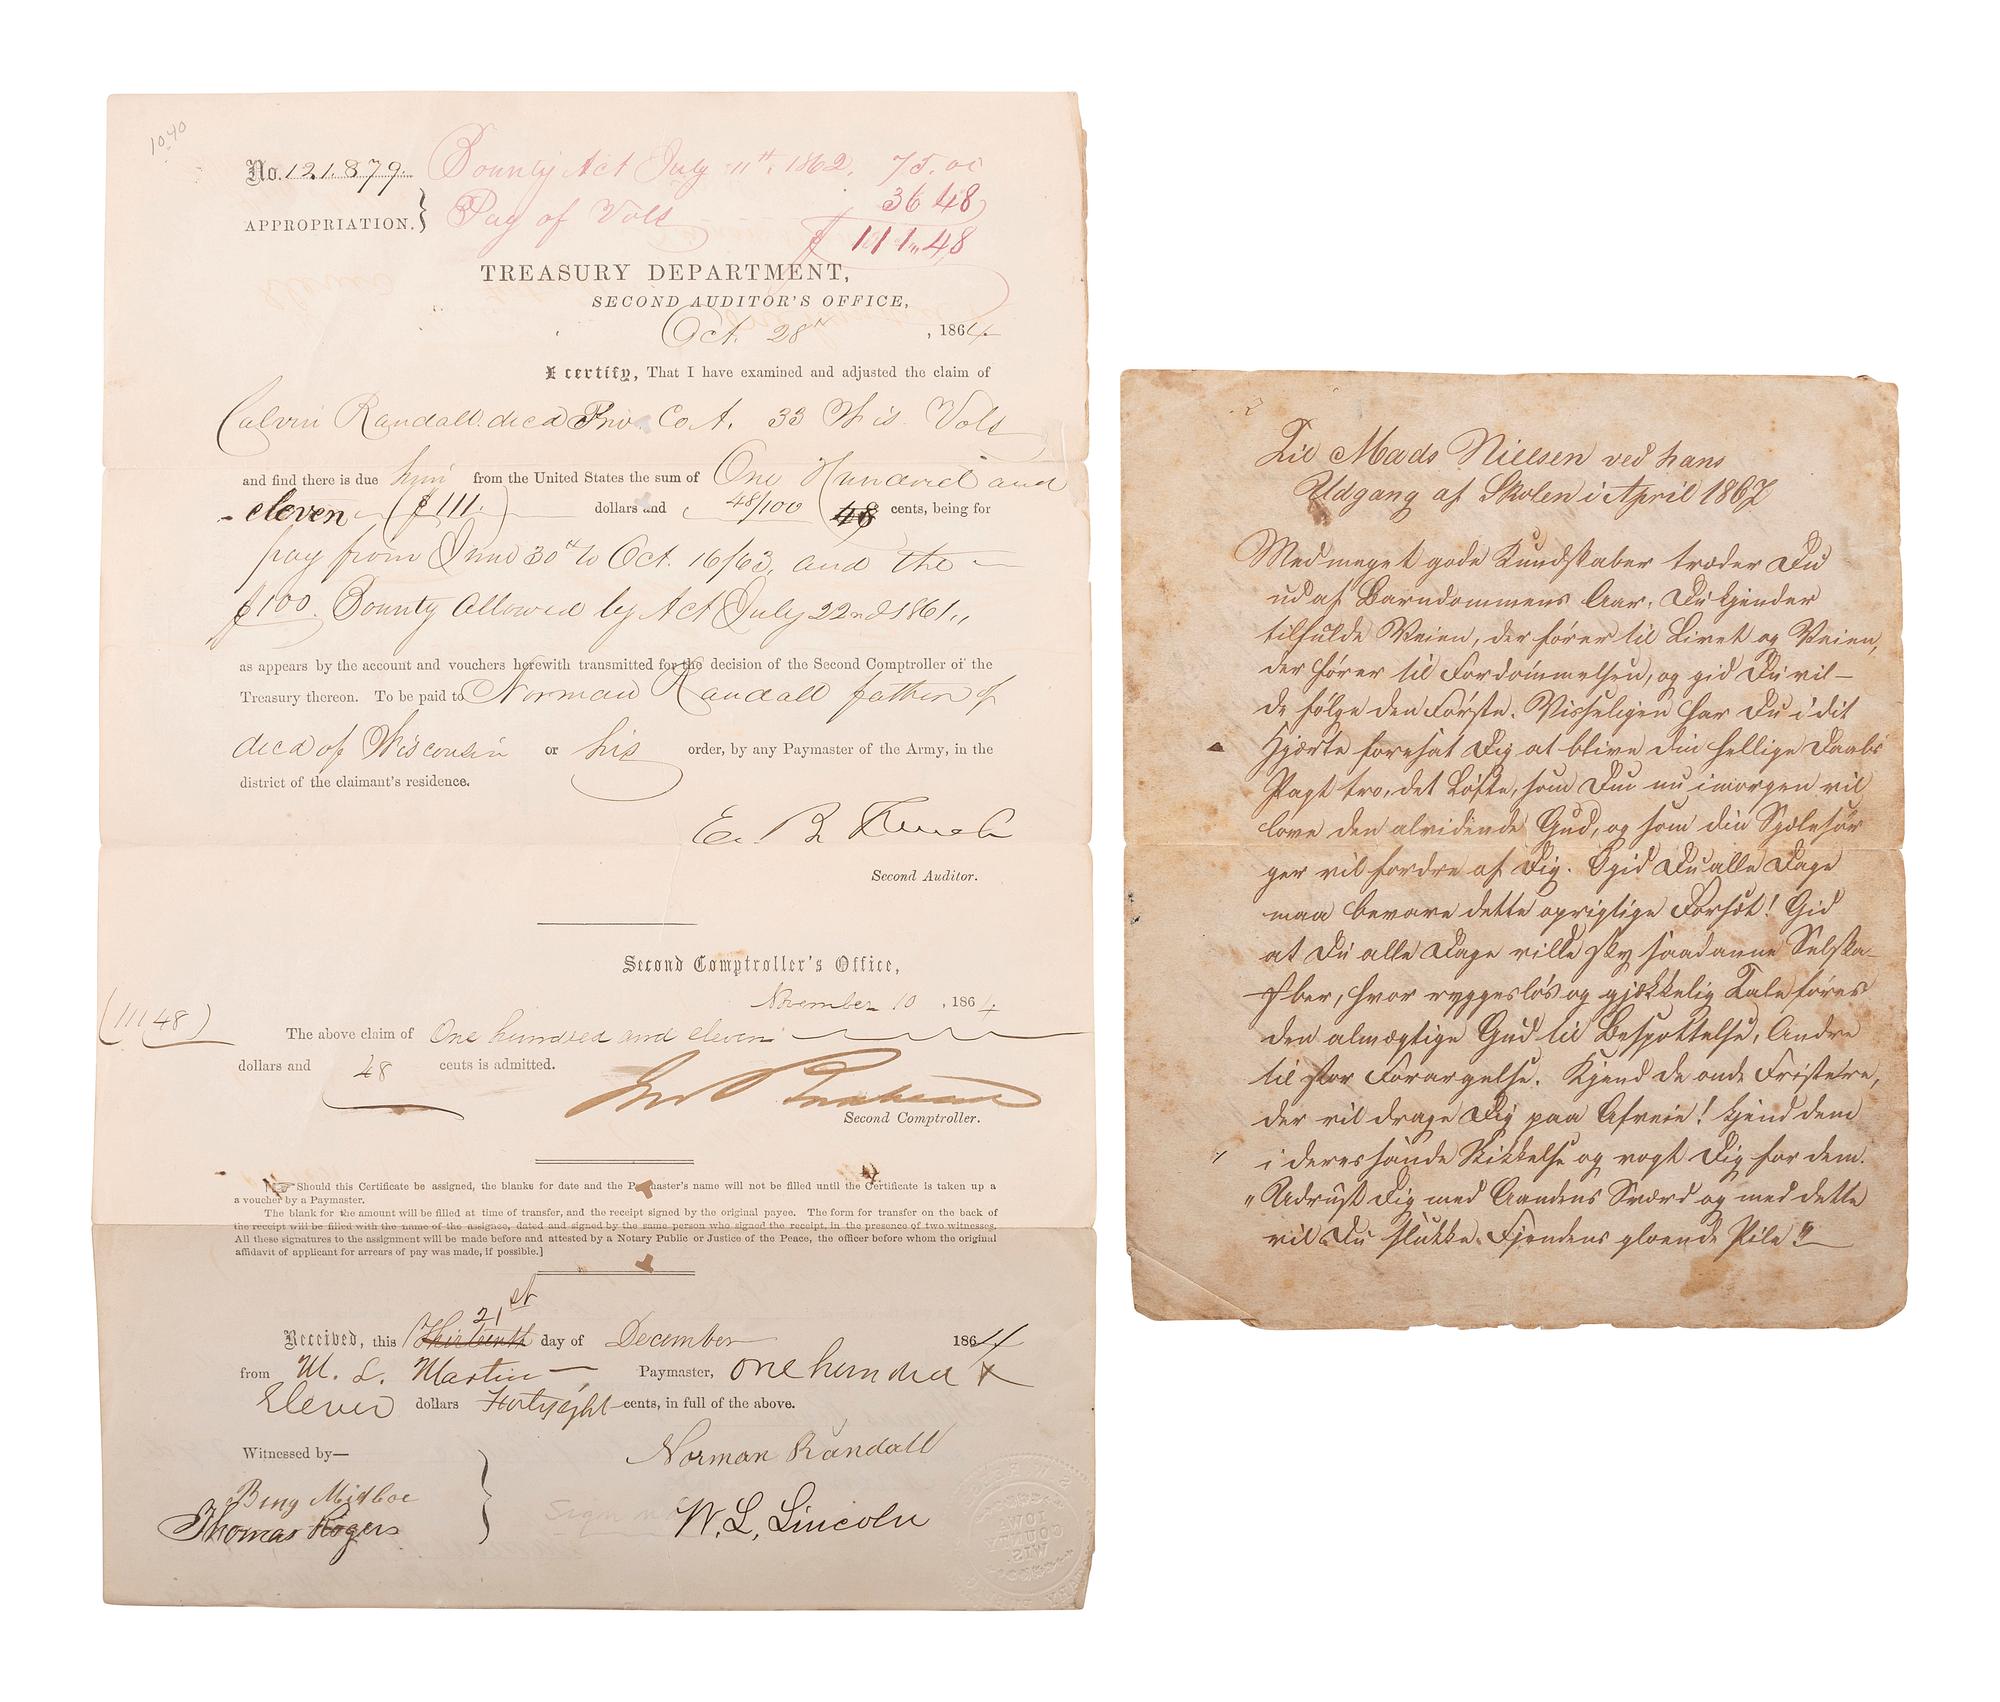 1040
No. 121.879. Bounty Act July 11th, 1862, 75.00
APPROPRIATION.} Pay of Vols 36 48
$ 111.48
TREASURY DEPARTMENT,
SECOND AUDITOR'S OFFICE,
Oct. 28th, 1864
I certify, That I have examined and adjusted the claim of
Calvin Randall decd Priv. Co A. 33 Wis Vols
and find there is due him from the United States the sum of One Hundred and
eleven ($111.) dollars and 48/100 (48 cents, being for
pay from June 30th to Oct. 16/63, and the
$100. Bounty allowed by Act July 22nd 1861,,
as appears by the account and vouchers herewith transmitted for the decision of the Second Comptroller of the
Treasury thereon. To be paid to Norman Randall father of
decd of Wisconsin or his order, by any Paymaster of the Army, in the
district of the claimant's residence.
E. B. French
Second Auditor.
Second Comptroller's Office,
November 10, 1864
(111 48)
The above claim of One hundred and eleven
dollars and 48 cents is admitted.
Second Comptroller.
[☞ Should this Certificate be assigned, the blanks for date and the Paymaster's name will not be filled until the Certificate is taken up as
a voucher by a Paymaster.
The blank for the amount will be filled at time of transfer, and the receipt signed by the original payee. The form for transfer on the back of
the receipt will be filled with the name of the assignee, dated and signed by the same person who signed the receipt, in the presence of two witnesses.
All these signatures to the assignment will be made before and attested by a Notary Public or Justice of the Peace, the officer before whom the original
affidavit of applicant for arrears of pay was made, if possible.]
21st
Received, this Thirteenth day of December 1864
from M. L. Martin Paymaster, one hundred &
Eleven dollars Fortyeight cents, in full of the above.
Witnessed by— Norman Randall
Beng Midboe
Thomas Rogers } W. L. Lincoln
IOWA
COUNTY
WIS.
Til Mads Nielsen ved hans
Udgang af Skolen i April 1867
Med meget gode Kundskaber træder Du
ud af Barndommens Aar. Du kjender
tilfulde Veien, der fører til Livet og Veien,
der fører til Fordømmelsen, og gid Du vil-
de følge den Første. Visseligen har Du i dit
Hjærte foresat Dig at blive din hellige Daabs
Pagt tro, det Løfte, som Du nu imorgen vil
love den alvidende Gud, og som din Sjælesør
ger vil fordre af Dig. O gid Du alle Dage
maa bevare dette oprigtige Forsæt! Gid
at Du alle Dage vilde sky saadanne Selska-
ber, hvor ryggesløs og gjækkelig Tale føres
den almægtige Gud til Bespottelse, Andre
til stor Forargelse. Kjend de onde Fristere,
der vil drage Dig paa Afveie! kjend dem
i deres sande Skikkelse og vogt Dig for dem.
"Udrust Dig med Aandens Sværd og med dette
vil Du slukke Fjendens gloende Pile!"